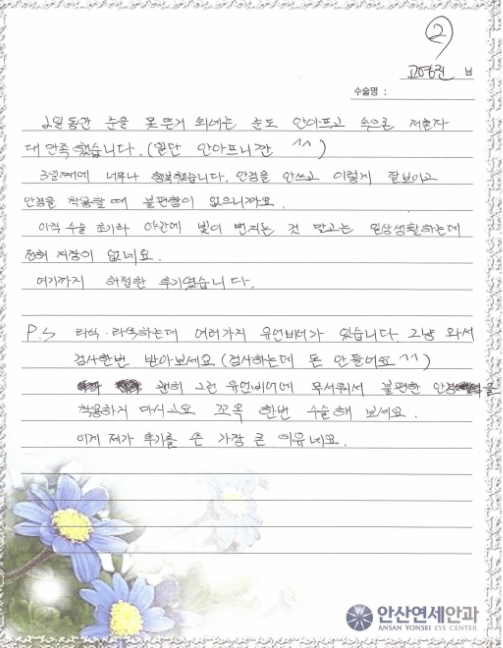 ②
고영진 님
수술명 :
2일동안 눈을 못뜬거 외에는 눈도 안아프고 속으론
대만족했습니다. (일단 안아프니깐 ^^)
3일째에 너무나 행복했습니다. 안경을 안쓰고 이렇게 잘보이고
안경을 착용할 때 불편함이 없으니까요.
아직 수술 초기라 야간에 빛이 번지는 것 말고는 일상생활하는데
전혀 지장이 없네요.
여기까지 허접한 후기였습니다.
P.S 라식·라섹하는데 여러가지 유언비어가 있습니다. 그냥 와서
검사한번 받아보세요 (검사하는데 돈 안들어요 ^^)
괜히 그런 유언비어에 무서워서 불편한 안경을
착용하게 마시고요 꼬옥 한번 수술해 보세요.
이게 제가 후기를 쓴 가장 큰 이유네요.
안산연세안과
ANSAN YONSEI EYE CENTER